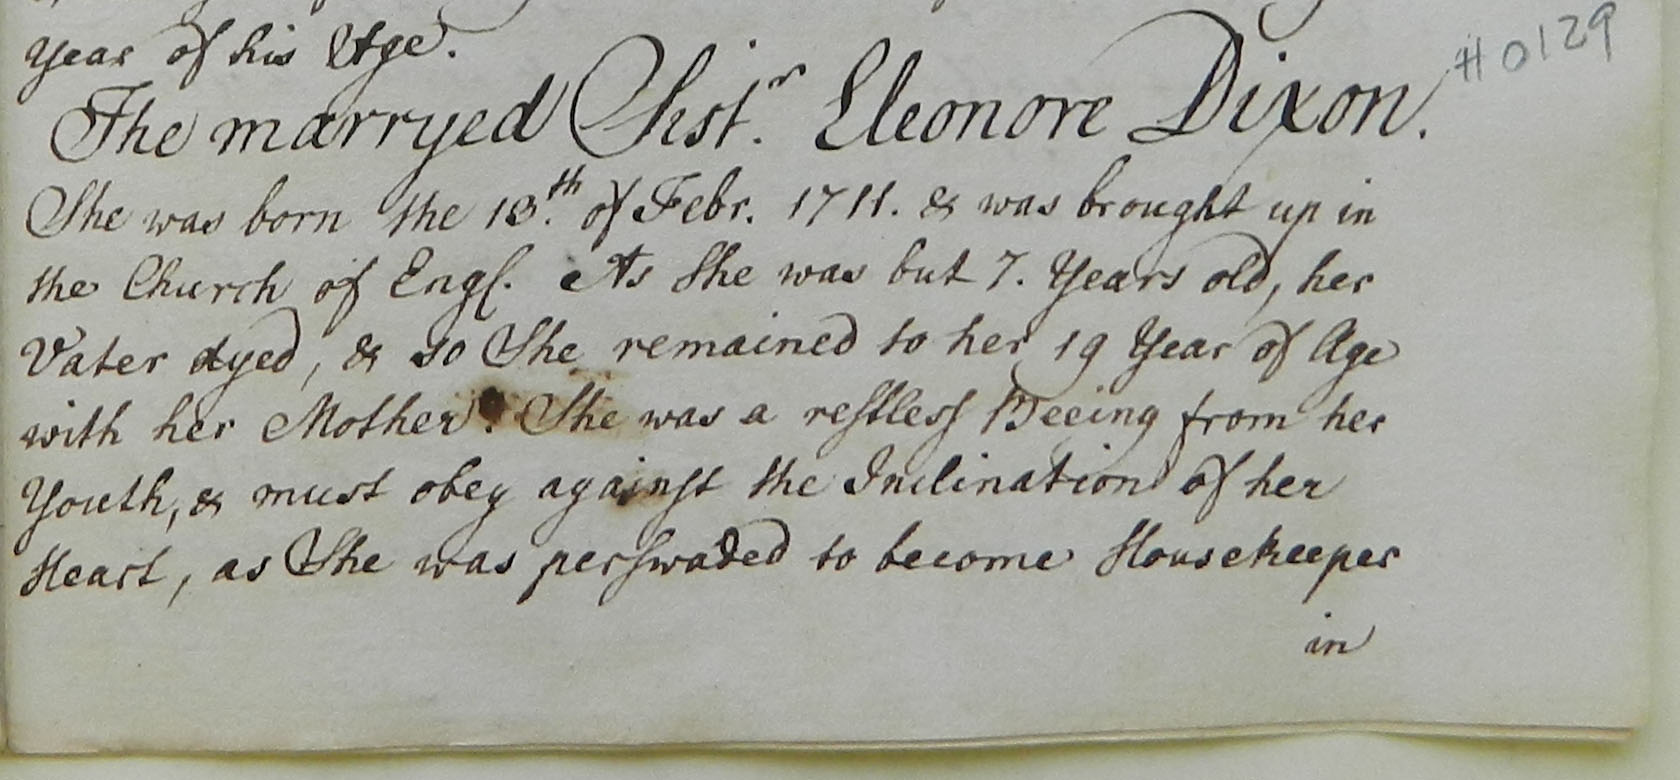 Year of his Age.
#0129
The marryed Sistr. Eleonore Dixon.
She was born the 13.th of Febr. 1711. & was brought up in
the Church of Engl. As She was but 7. Years old, her
Vater dyed, & so She remained to her 19 Year of Age
with her Mother. She was a restless Beeing from her
Youth, & must obey against the Inclination of her
Heart, as She was perswaded to become Housekeeper
in